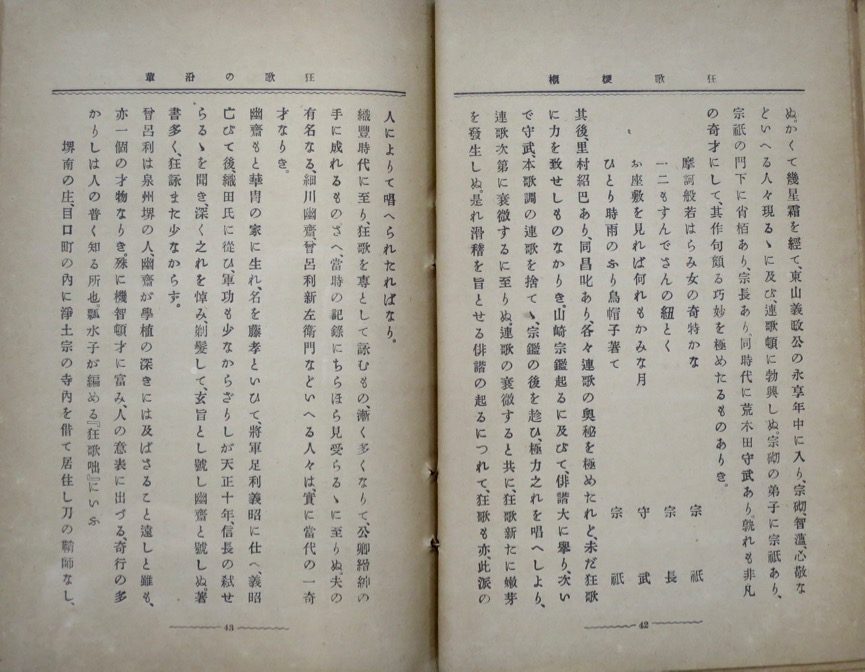 狂歌梗概
ぬ。かくて幾星霜を經て、東山義政公の永享年中に入り、宗砌、智蘊、心敬な
どいへる人々現るゝに及び、連歌頓に勃興しぬ。宗砌の弟子に宗祇あり、
宗祇の門下に肖栢あり、宗長あり。同時代に荒木田守武あり。孰れも非凡
の奇才にして、其作句頗る巧妙を極めたるものありき。
摩訶般若はらみ女の奇特かな 宗祇
一二もすんでさんの紐とく 宗長
お座敷を見れば何れもかみな月 守武
ひとり時雨のふり烏帽子著て 宗祇
其後、里村紹巴あり、同昌叱あり、各々連歌の奧秘を極めたれど、未だ狂歌
に力を致せしものなかりき。山崎宗鑑起るに及びて、俳諧大に擧り、次い
で守武、本歌調の連歌を捨てゝ、宗鑑の後を趁ひ、極力之れを唱へしより、
連歌次第に衰微するに至りぬ。連歌の衰微すると共に、狂歌新たに嫩芽
を發生しぬ。是れ滑稽を旨とせる俳諧の起るにつれて、狂歌も亦、此派の
42
狂歌の沿革
人によりて唱へられたればなり。
織豐時代に至り、狂歌を專として詠むもの、漸く多くなりて、公卿縉紳の
手に成れるものさへ、當時の記録にちらほら見受らるゝに至りぬ。夫の
有名なる、細川幽齋、曾呂利新左衞門などいへる人々は、實に當代の一奇
才なりき。
幽齋もと華冑の家に生れ、名を藤孝といひて、將軍足利義昭に仕へ、義昭
亡びて後、織田氏に從ひ、軍功も少なからざりしが、天正十年、信長の弑せ
らるゝを聞き、深く之れを悼み、剃髮して、玄旨とし號し幽齋と號しぬ。著
書多く、狂詠また少なからず。
曾呂利は泉州堺の人、幽齋が學植の深きには及ばざること遠しと雖も、
亦一個の才物なりき。殊に機智頓才に富み、人の意表に出づる、奇行の多
かりしは人の普く知る所也。瓢水子が編める『狂歌咄』にいふ
堺南の庄、目口町の内に淨土宗の寺内を借て居住し刀の鞘師なし、
43